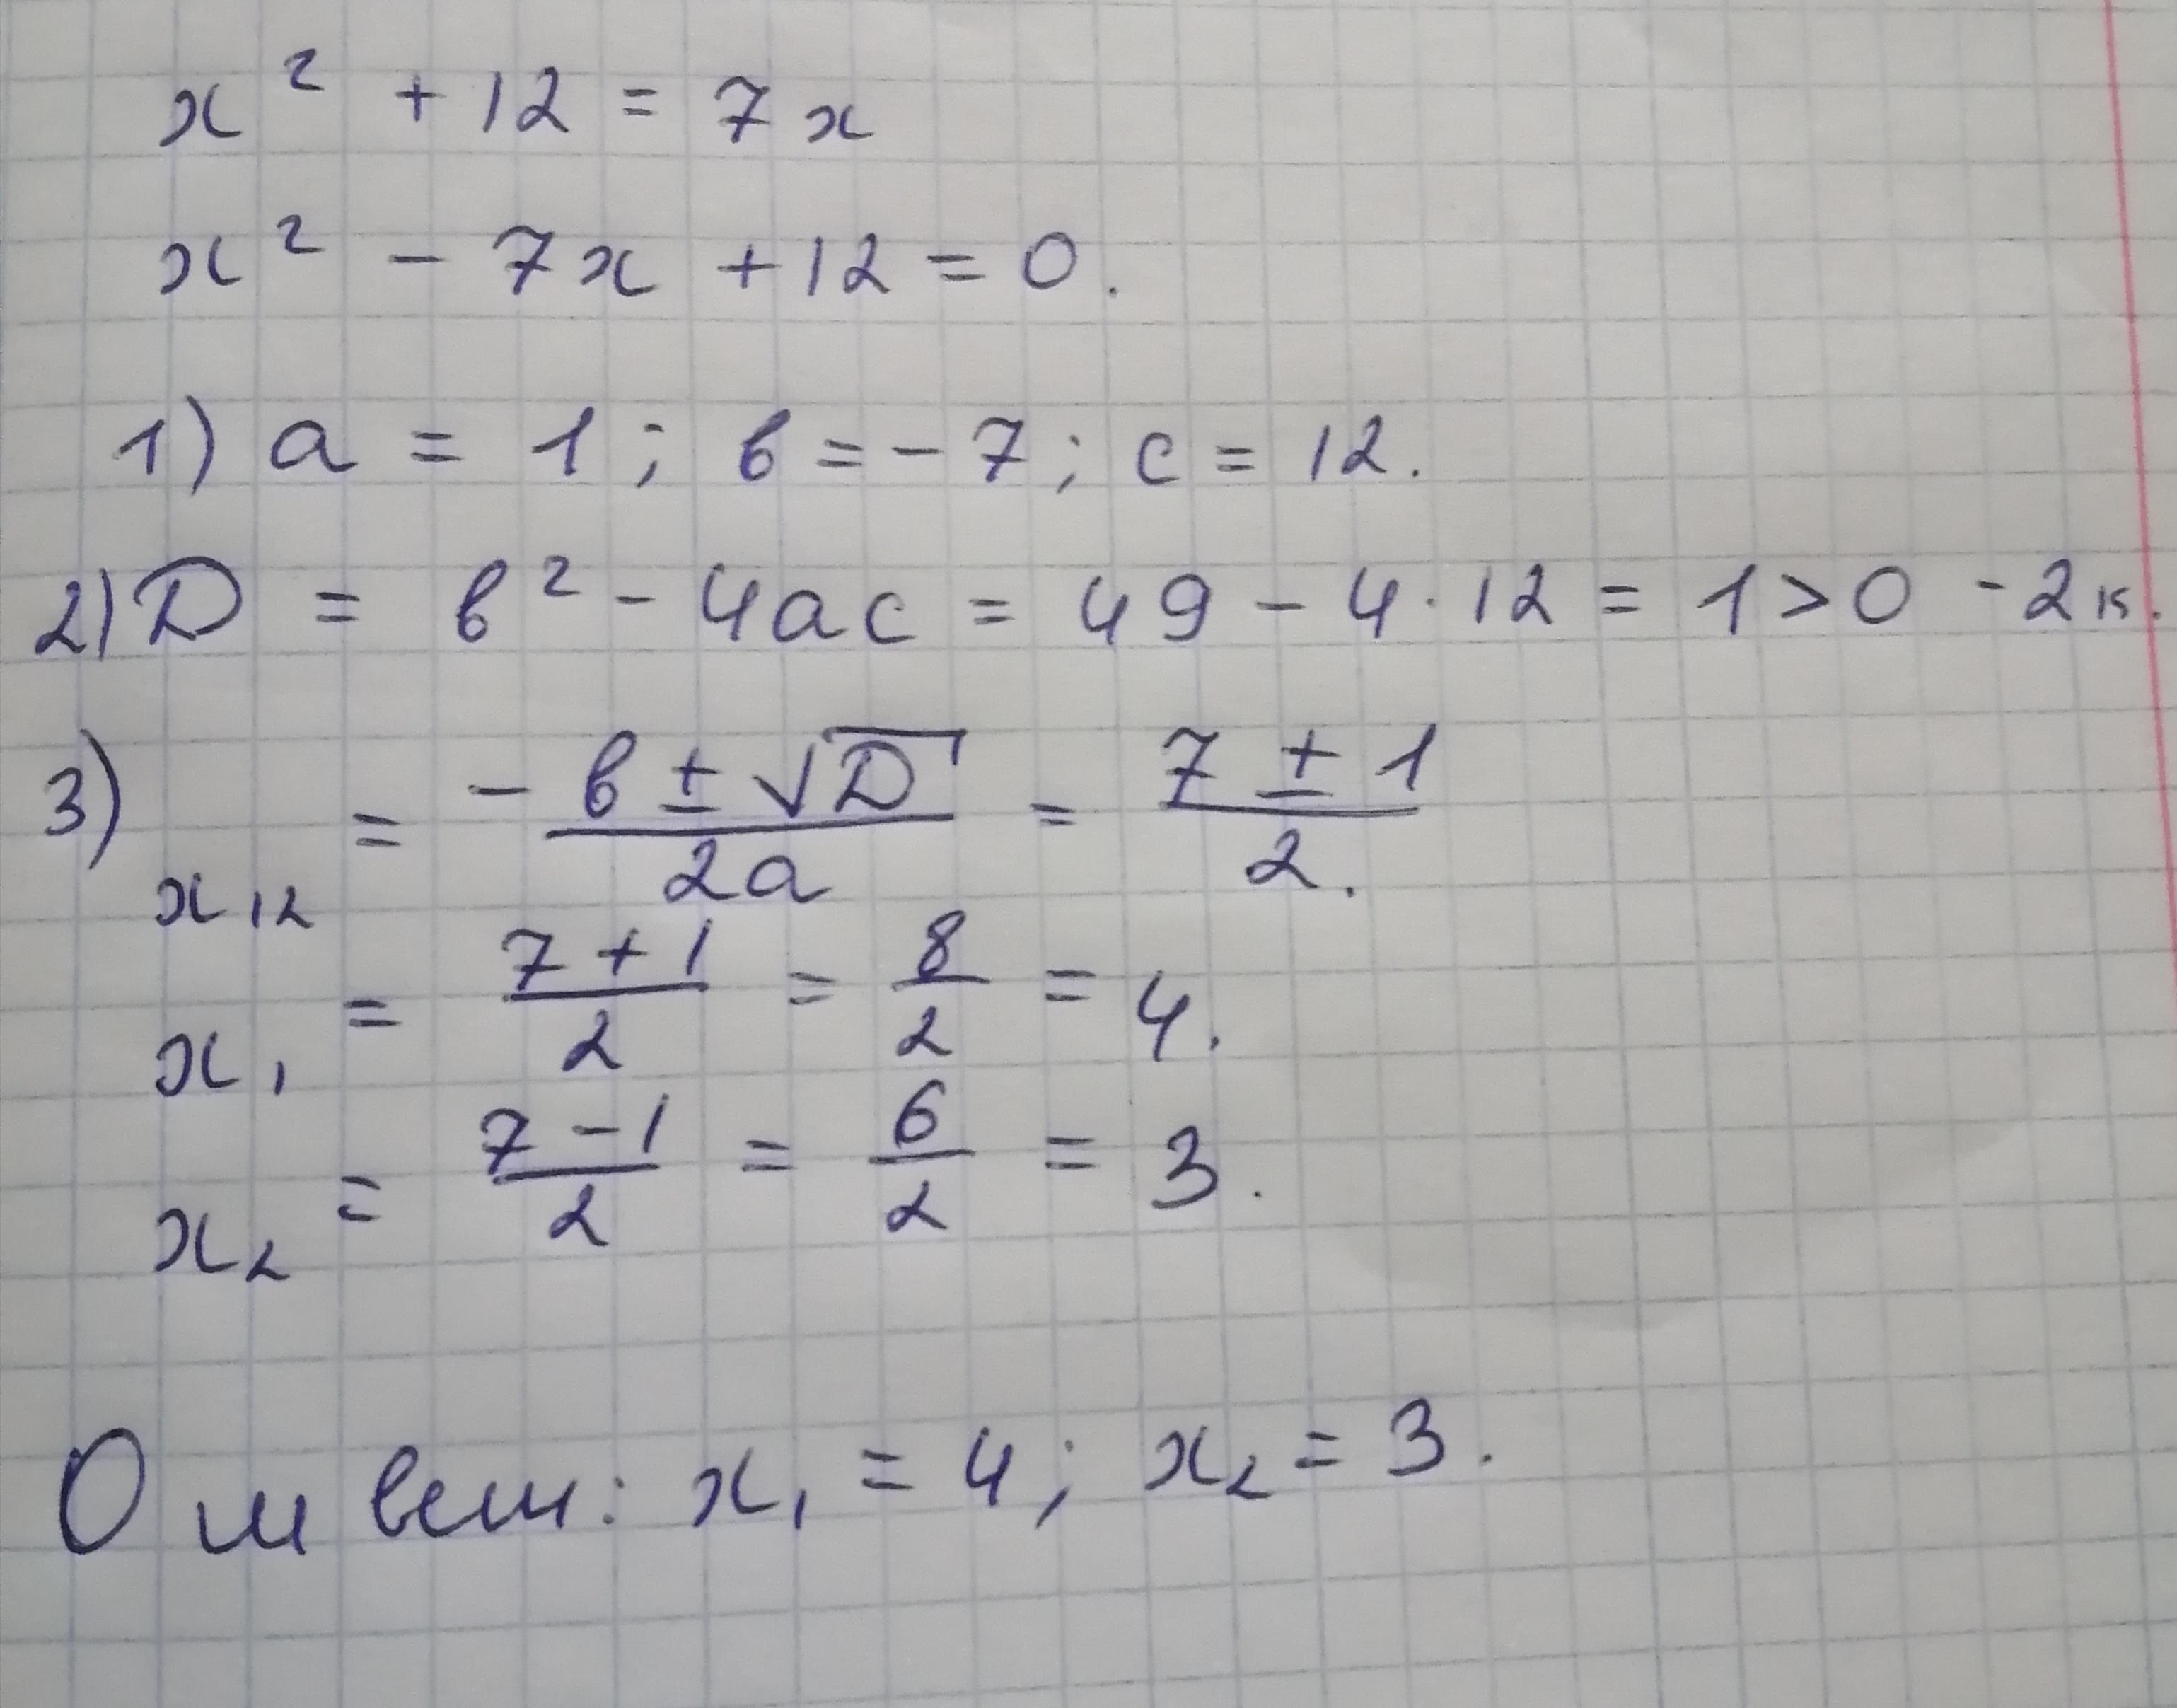 x² + 12 = 7x
x² - 7x + 12 = 0.
1) a = 1; в = -7; c = 12.
2) D = в² - 4ac = 49 - 4·12 = 1 > 0 - 2к.
3) x₁₂ = -в ± √D / 2a = 7 ± 1 / 2.
x₁ = 7 + 1 / 2 = 8 / 2 = 4.
x₂ = 7 - 1 / 2 = 6 / 2 = 3.
Ответ: x₁ = 4; x₂ = 3.